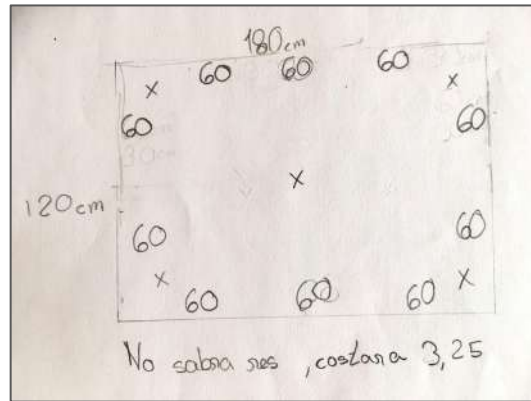 180cm
60 60 60
x x
60 60
x
120cm
60 60
x x
60 60 60
No sabra res, costara 3,25